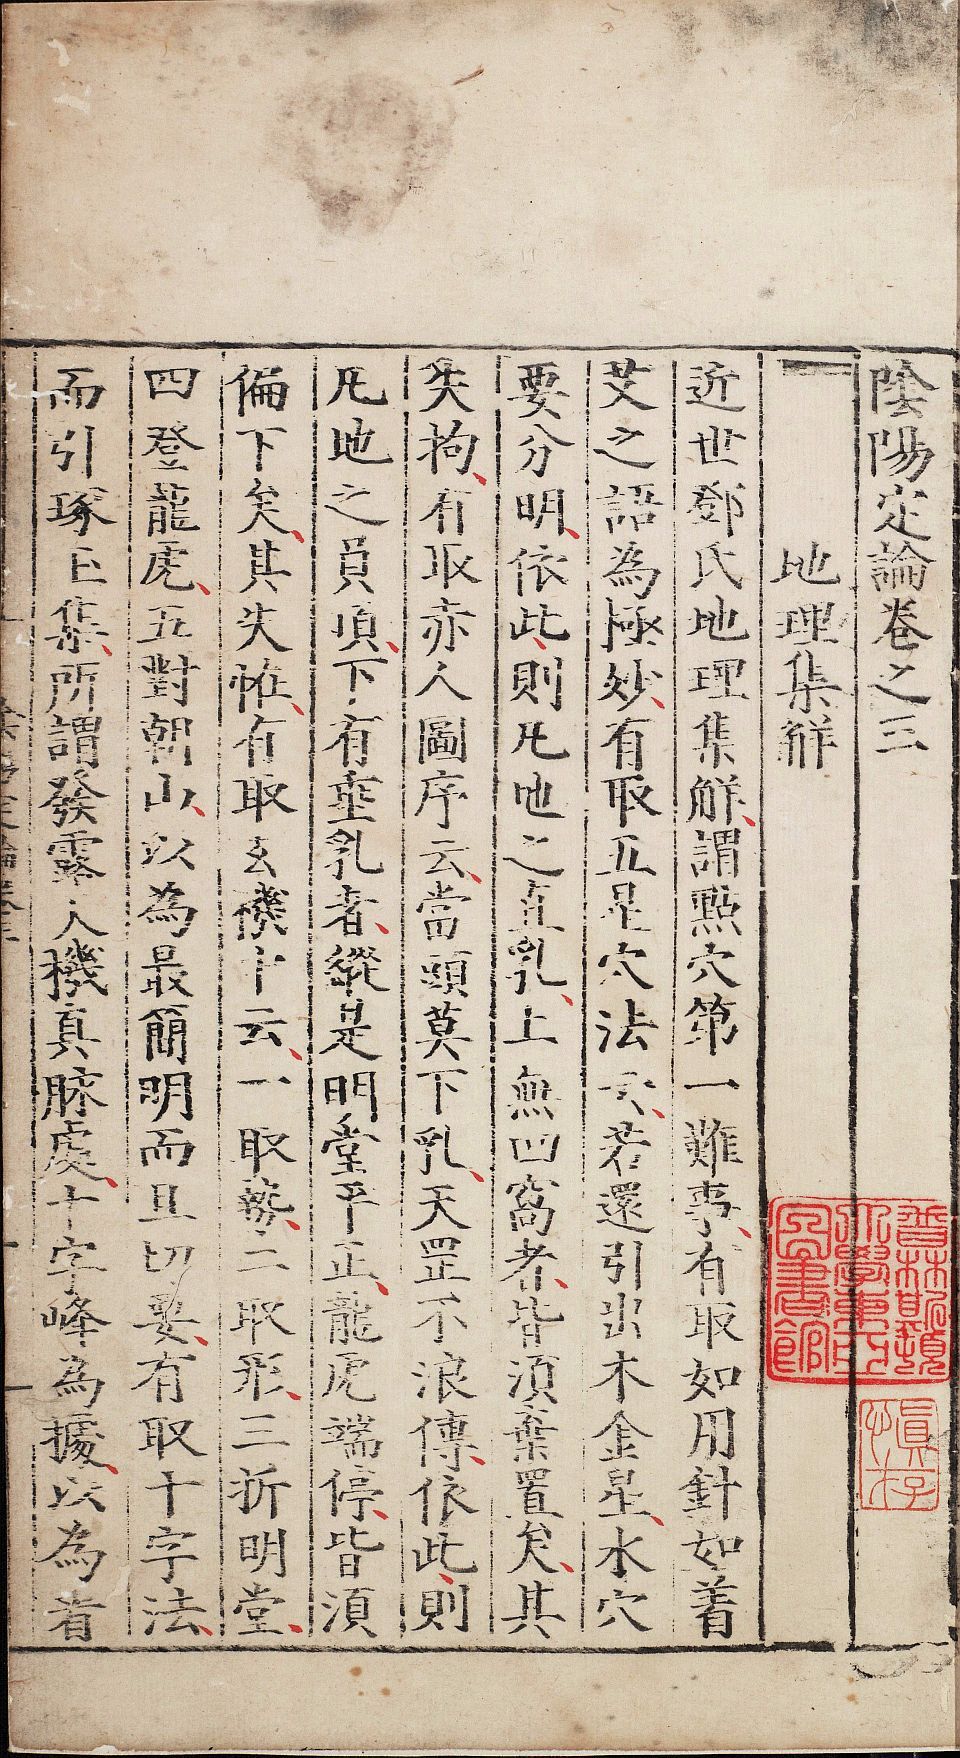 陰陽定論卷之三
地理集解
近世鄧氏地理集解謂點穴第一難事有取如用針如着
艾之語為極妙有取五星穴法云若還引出木金星水穴
要分明依此則凡地之直乳上無凹窩者皆須棄置矣其
失拘有取赤人圖序云當頭莫下乳天罡不浪傳依此則
凡地之員頂下有垂乳者縱是明堂平正龍虎端停皆須
偏下矣其失恠有取玄機十云一取勢二取形三折明堂
四登龍虎五對朝山以為最簡明而且切要有取十字法
而引琢玉集所謂發露人機真脉處十字峰為據以為省
普林斯頓大學葛思德東方圖書館
慎存